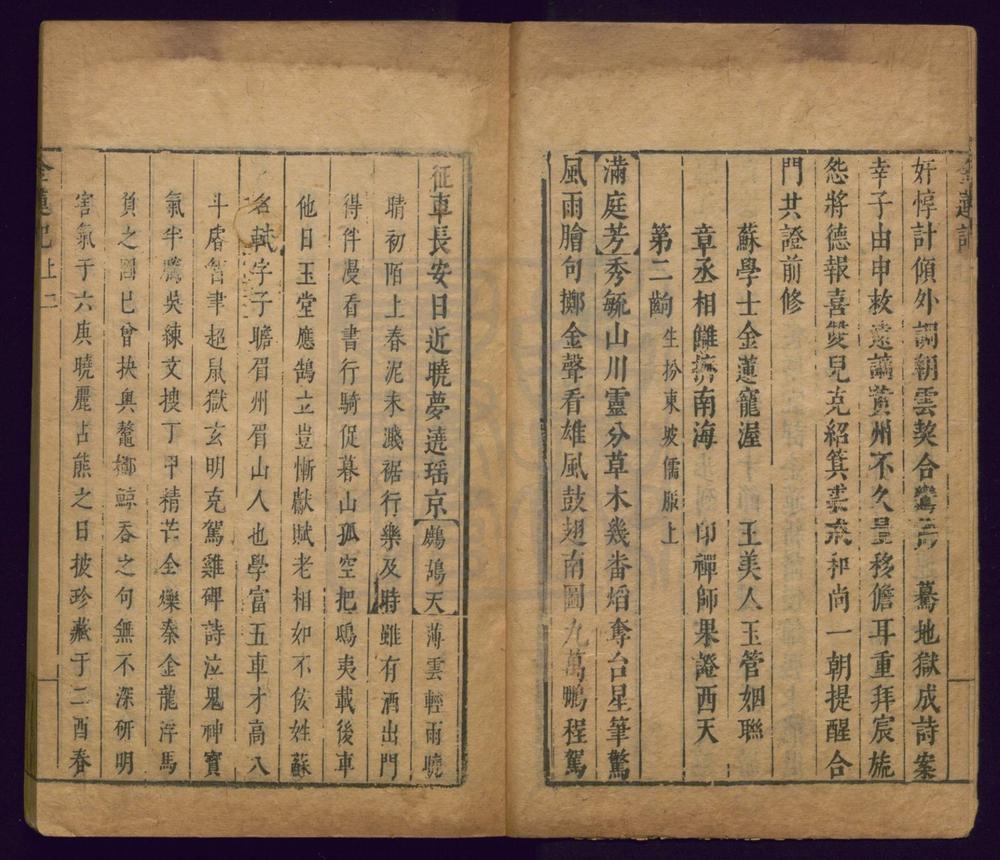 奸惇計傾外調朝雲契合鸞 驀地獄成詩案
幸子由申救遠謫黃州不久量移儋耳重拜宸旒
怨將德報喜雙兒克紹箕裘戒和尚一朝提醒合
門共證前修
蘇學士金蓮寵渥 王美人玉管姻聯
章丞相讎擠南海 印禪師果證西天
第二齣 生扮東坡儒服上
滿庭芳 秀毓山川靈分草木幾番熖奪台星筆驚
風雨膾句擲金聲看雄風鼓翅南圖九萬鵬程駕
征車長安日近曉夢遶瑤京 鷓鴣天 薄雲輕雨曉
晴初陌上春泥未濺裾行樂及時雖有酒出門
得伴漫看書行騎促暮山孤空把鴟夷載後車
他日玉堂應鵠立豈慚獻賦老相如不佞姓蘇
名軾字子瞻眉州眉山人也學富五車才高八
斗 聿超鼠獄玄明克駕雞碑詩泣鬼神寶
氣半騰吳練文搜丁甲精芒全爍秦金龍浮馬
負之圖已曾抉奧鼇擲鯨吞之句無不深研明
害氣于六庚曉麗占熊之日披珍藏于二酉春
金蓮記上 二